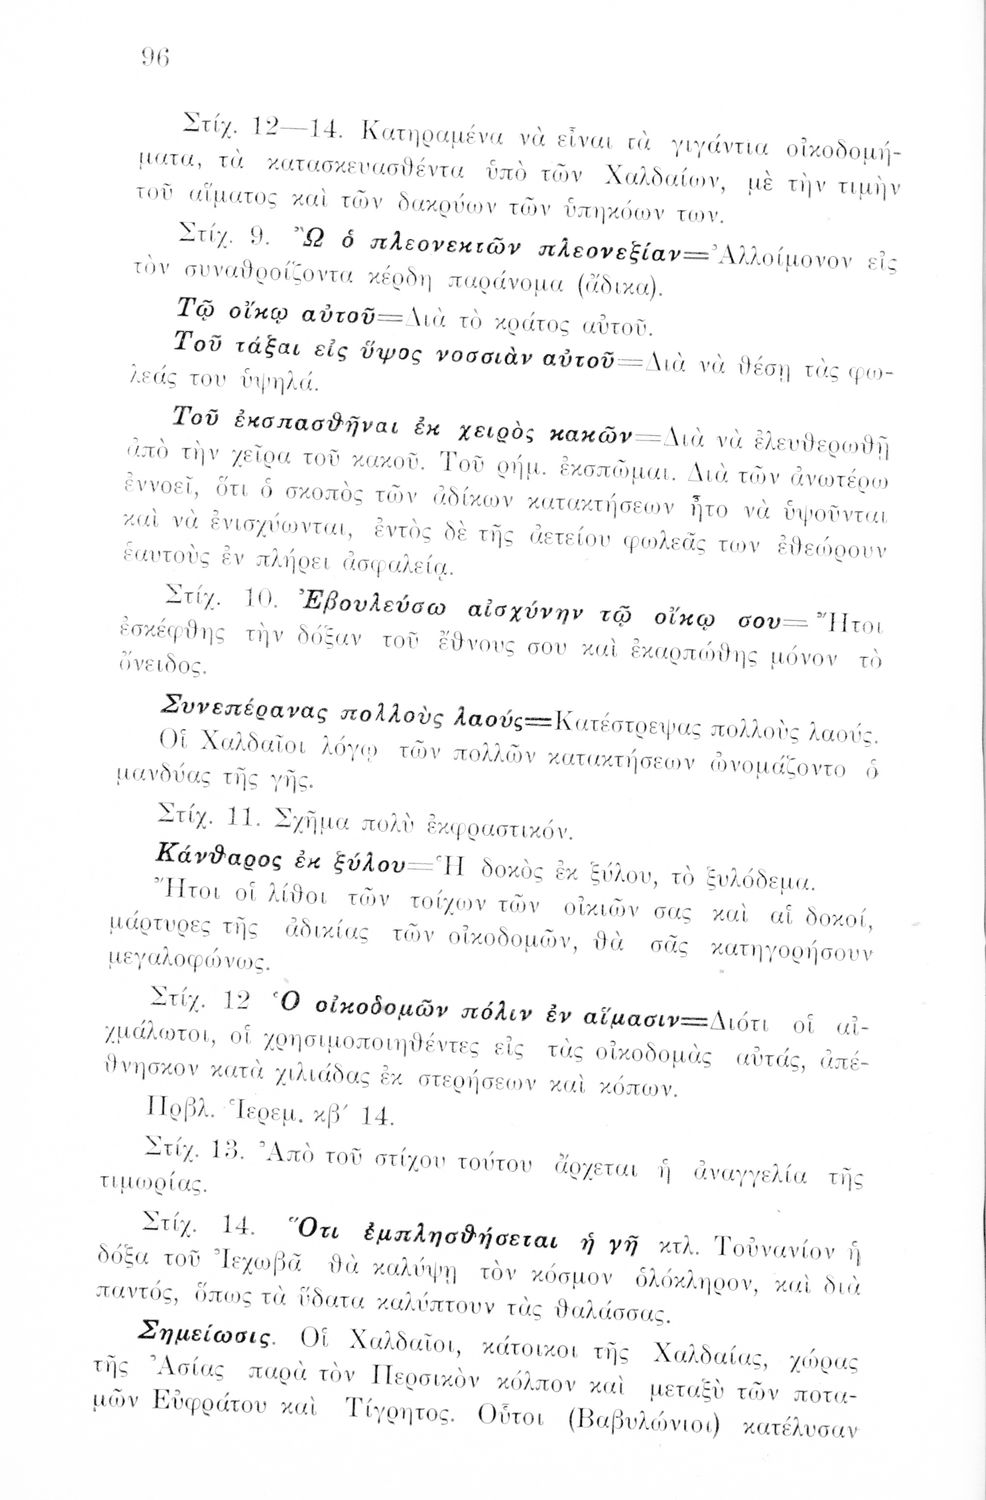 96
Στίχ. 12—14. Κατηραμένα νὰ εἶναι τὰ γιγάντια οἰκοδομή-
ματα, τὰ κατασκευασθέντα ὑπὸ τῶν Χαλδαίων, μὲ τὴν τιμὴν
τοῦ αἵματος καὶ τῶν δακρύων τῶν ὑπηκόων των.
Στίχ. 9. Ὢ ὁ πλεονεκτῶν πλεονεξίαν=Ἀλλοίμονον εἰς
τὸν συναθροίζοντα κέρδη παράνομα (ἄδικα).
Τῷ οἴκῳ αὐτοῦ=Διὰ τὸ κράτος αὐτοῦ.
Τοῦ τάξαι εἰς ὕψος νοσσιὰν αὐτοῦ=Διὰ νὰ θέσῃ τὰς φω-
λεάς του ὑψηλά.
Τοῦ ἐκσπασθῆναι ἐκ χειρὸς κακῶν=Διὰ νὰ ἐλευθερωθῇ
ἀπὸ τὴν χεῖρα τοῦ κακοῦ. Τοῦ ρήμ. ἐκσπῶμαι. Διὰ τῶν ἀνωτέρω
ἐννοεῖ, ὅτι ὁ σκοπὸς τῶν ἀδίκων κατακτήσεων ἦτο νὰ ὑψοῦνται
καὶ νὰ ἐνισχύωνται, ἐντὸς δὲ τῆς ἀετείου φωλεᾶς των ἐθεώρουν
ἑαυτοὺς ἐν πλήρει ἀσφαλείᾳ.
Στίχ. 10. Ἐβουλεύσω αἰσχύνην τῷ οἴκῳ σου= Ἤτοι
ἐσκέφθης τὴν δόξαν τοῦ ἔθνους σου καὶ ἐκαρπώθης μόνον τὸ
ὄνειδος.
Συνεπέρανας πολλοὺς λαούς=Κατέστρεψας πολλοὺς λαούς.
Οἱ Χαλδαῖοι λόγῳ τῶν πολλῶν κατακτήσεων ὠνομάζοντο ὁ
μανδύας τῆς γῆς.
Στίχ. 11. Σχῆμα πολὺ ἐκφραστικόν.
Κάνθαρος ἐκ ξύλου=Ἡ δοκὸς ἐκ ξύλου, τὸ ξυλόδεμα.
Ἤτοι οἱ λίθοι τῶν τοίχων τῶν οἰκιῶν σας καὶ αἱ δοκοί,
μάρτυρες τῆς ἀδικίας τῶν οἰκοδομῶν, θὰ σᾶς κατηγορήσουν
μεγαλοφώνως.
Στίχ. 12 Ὁ οἰκοδομῶν πόλιν ἐν αἵμασιν=Διότι οἱ αἰ-
χμάλωτοι, οἱ χρησιμοποιηθέντες εἰς τὰς οἰκοδομὰς αὐτάς, ἀπέ-
θνησκον κατὰ χιλιάδας ἐκ στερήσεων καὶ κόπων.
Πρβλ. Ἱερεμ. κβ′ 14.
Στίχ. 13. Ἀπὸ τοῦ στίχου τούτου ἄρχεται ἡ ἀναγγελία τῆς
τιμωρίας.
Στίχ. 14. Ὅτι ἐμπλησθήσεται ἡ γῆ κτλ. Τοὐνανίον ἡ
δόξα τοῦ Ἰεχωβᾶ θὰ καλύψῃ τὸν κόσμον ὁλόκληρον, καὶ διὰ
παντός, ὅπως τὰ ὕδατα καλύπτουν τὰς θαλάσσας.
Σημείωσις. Οἱ Χαλδαῖοι, κάτοικοι τῆς Χαλδαίας, χώρας
τῆς Ἀσίας παρὰ τὸν Περσικὸν κόλπον καὶ μεταξὺ τῶν ποτα-
μῶν Εὐφράτου καὶ Τίγρητος. Οὗτοι (Βαβυλώνιοι) κατέλυσαν